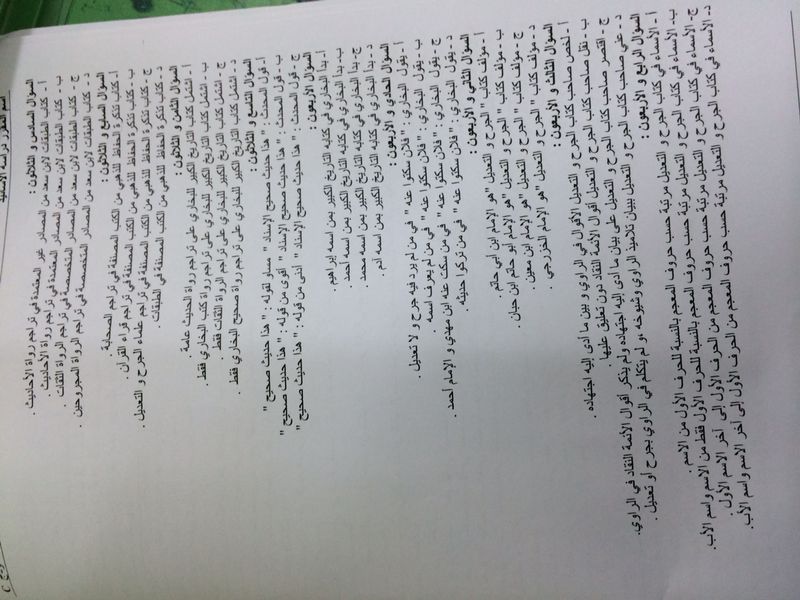 اسم المقرر: دراسة الأسانيد
السؤال السادس و الثلاثون :
أ - كتاب الطبقات لابن سعد من المصادر غير المعتمدة في تراجم رواة الأحاديث .
ب - كتاب الطبقات لابن سعد من المصادر المعتمدة في تراجم رواة الأحاديث .
ج - كتاب الطبقات لابن سعد من المصادر المتخصصة في تراجم الرواة الثقات .
د - كتاب الطبقات لابن سعد من المصادر المتخصصة في تراجم الرواة المجروحين .
السؤال السابع و الثلاثون :
أ - كتاب تذكرة الحفاظ للذهبي من الكتب المصنفة في تراجم الصحابة .
ب - كتاب تذكرة الحفاظ للذهبي من الكتب المصنفة في تراجم قراء القرآن .
ج - كتاب تذكرة الحفاظ للذهبي من الكتب المصنفة في تراجم علماء الجرح و التعديل .
د - كتاب تذكرة الحفاظ للذهبي من الكتب المصنفة في الطبقات .
السؤال الثامن و الثلاثون :
أ - اشتمل كتاب التاريخ الكبير للبخاري على تراجم رواة الحديث عامة .
ب - اشتمل كتاب التاريخ الكبير للبخاري على تراجم رواة كتب البخاري فقط .
ج - اشتمل كتاب التاريخ الكبير للبخاري على تراجم الرواة الثقات فقط .
د - اشتمل كتاب التاريخ الكبير للبخاري على تراجم رواة صحيح البخاري فقط .
السؤال التاسع و الثلاثون :
أ - قول المحدث : " هذا حديث صحيح الإسناد " مساو لقوله : " هذا حديث صحيح "
ب - قول المحدث : " هذا حديث صحيح الإسناد " أقوى من قوله : " هذا حديث صحيح "
ج - قول المحدث : " هذا حديث صحيح الإسناد " أدنى من قوله : " هذا حديث صحيح "
السؤال الأربعون :
أ - بدأ البخاري في كتابه التاريخ الكبير بمن اسمه إبراهيم .
ب - بدأ البخاري في كتابه التاريخ الكبير بمن اسمه أحمد .
ج - بدأ البخاري في كتابه التاريخ الكبير بمن اسمه محمد .
د - بدأ البخاري في كتابه التاريخ الكبير بمن اسمه آدم .
السؤال الحادي و الأربعون :
أ - يقول البخاري : " فلان سكتوا عنه " في من لم يرد فيه جرح و لا تعديل .
ب - يقول البخاري : " فلان سكتوا عنه " في من لم يعرف اسمه .
ج - يقول البخاري : " فلان سكتوا عنه " في من سكت عنه ابن مهدي و الإمام أحمد .
د - يقول البخاري : " فلان سكتوا عنه " في من تركوا حديثه .
السؤال الثاني و الأربعون :
أ - مؤلف كتاب " الجرح و التعديل " هو الإمام ابن أبي حاتم .
ب - مؤلف كتاب " الجرح و التعديل " هو الإمام أبو حاتم ابن حبان .
ج - مؤلف كتاب " الجرح و التعديل " هو الإمام ابن معين .
د - مؤلف كتاب " الجرح و التعديل " هو الإمام الخزرجي .
السؤال الثالث و الأربعون :
أ - لخص صاحب كتاب الجرح و التعديل الأقوال في الراوي و بين ما أدى إليه اجتهاده .
ب - نقل صاحب كتاب الجرح و التعديل أقوال الأئمة النقاد دون تعليق عليها .
ج - اقتصر صاحب كتاب الجرح و التعديل على بيان ما أدى إليه اجتهاده ولم يذكر أقوال الأئمة النقاد في الراوي .
د - عني صاحب كتاب الجرح و التعديل ببيان تلاميذ الراوي وشيوخه ،و لم يتكلم في الراوي بجرح أو تعديل .
السؤال الرابع و الأربعون :
أ - الأسماء في كتاب الجرح و التعديل مرتبة حسب حروف المعجم بالنسبة للحرف الأول من الاسم .
ب - الأسماء في كتاب الجرح و التعديل مرتبة حسب حروف المعجم بالنسبة للحرف الأول فقط من الاسم واسم الأب .
ج - الأسماء في كتاب الجرح و التعديل مرتبة حسب حروف المعجم من الحرف الأول إلى آخر الاسم الأول .
د - الأسماء في كتاب الجرح و التعديل مرتبة حسب حروف المعجم من الحرف الأول إلى آخر الاسم واسم الأب .